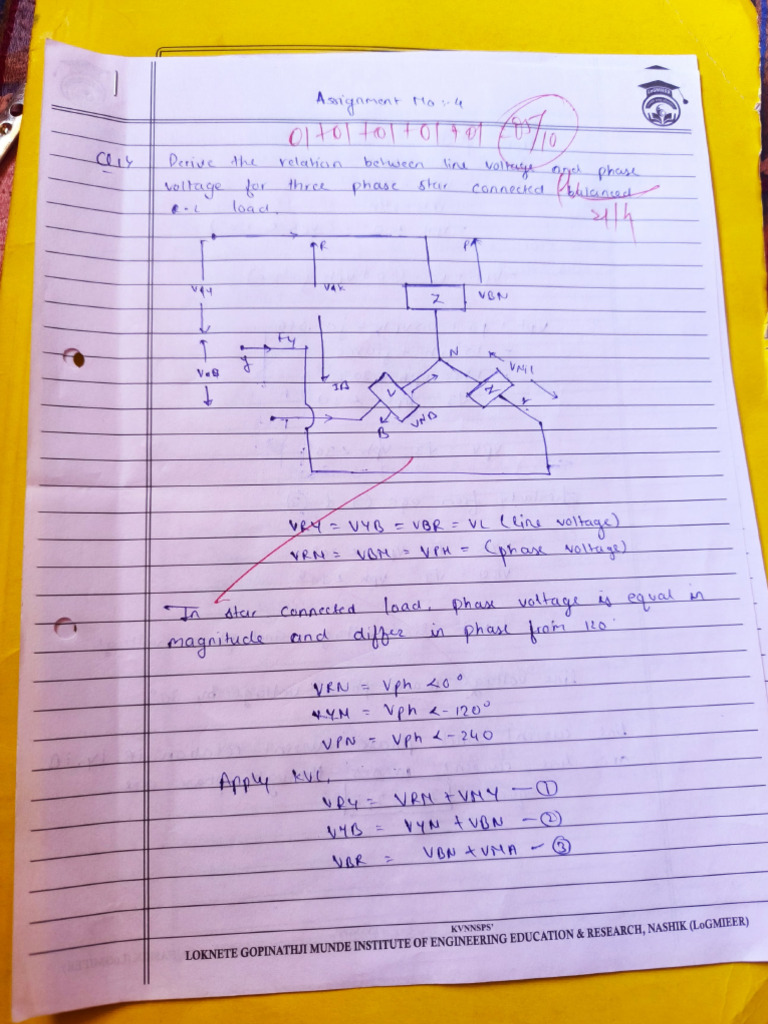 Assignment No :- 4
01+01+01+01+01 05/10
Q.1) Derive the relation between line voltage and phase
voltage for three phase star connected balanced
load.
R
Z
VBN
N
y
B
VNB
VRY = VYB = VBR = VL (line voltage)
VRN = VBN = VPH = (phase voltage)
In star connected load, phase voltage is equal in
magnitude and differ in phase from 120
VRN = Vph <0°
VYN = Vph <-120°
VPN = Vph <-240
Apply KVL,
VRY = VRN + VNY — ①
VYB = VYN + VBN — ②
VBR = VBN + VNA — ③
KVNNSPS'
LOKNETE GOPINATHJI MUNDE INSTITUTE OF ENGINEERING EDUCATION & RESEARCH, NASHIK (LoGMIEER)